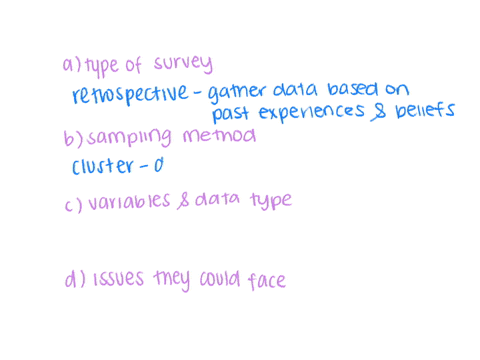 a) type of survey
retrospective - gather data based on
past experiences & beliefs
b) sampling method
cluster - d
c) variables & data type
d) issues they could face